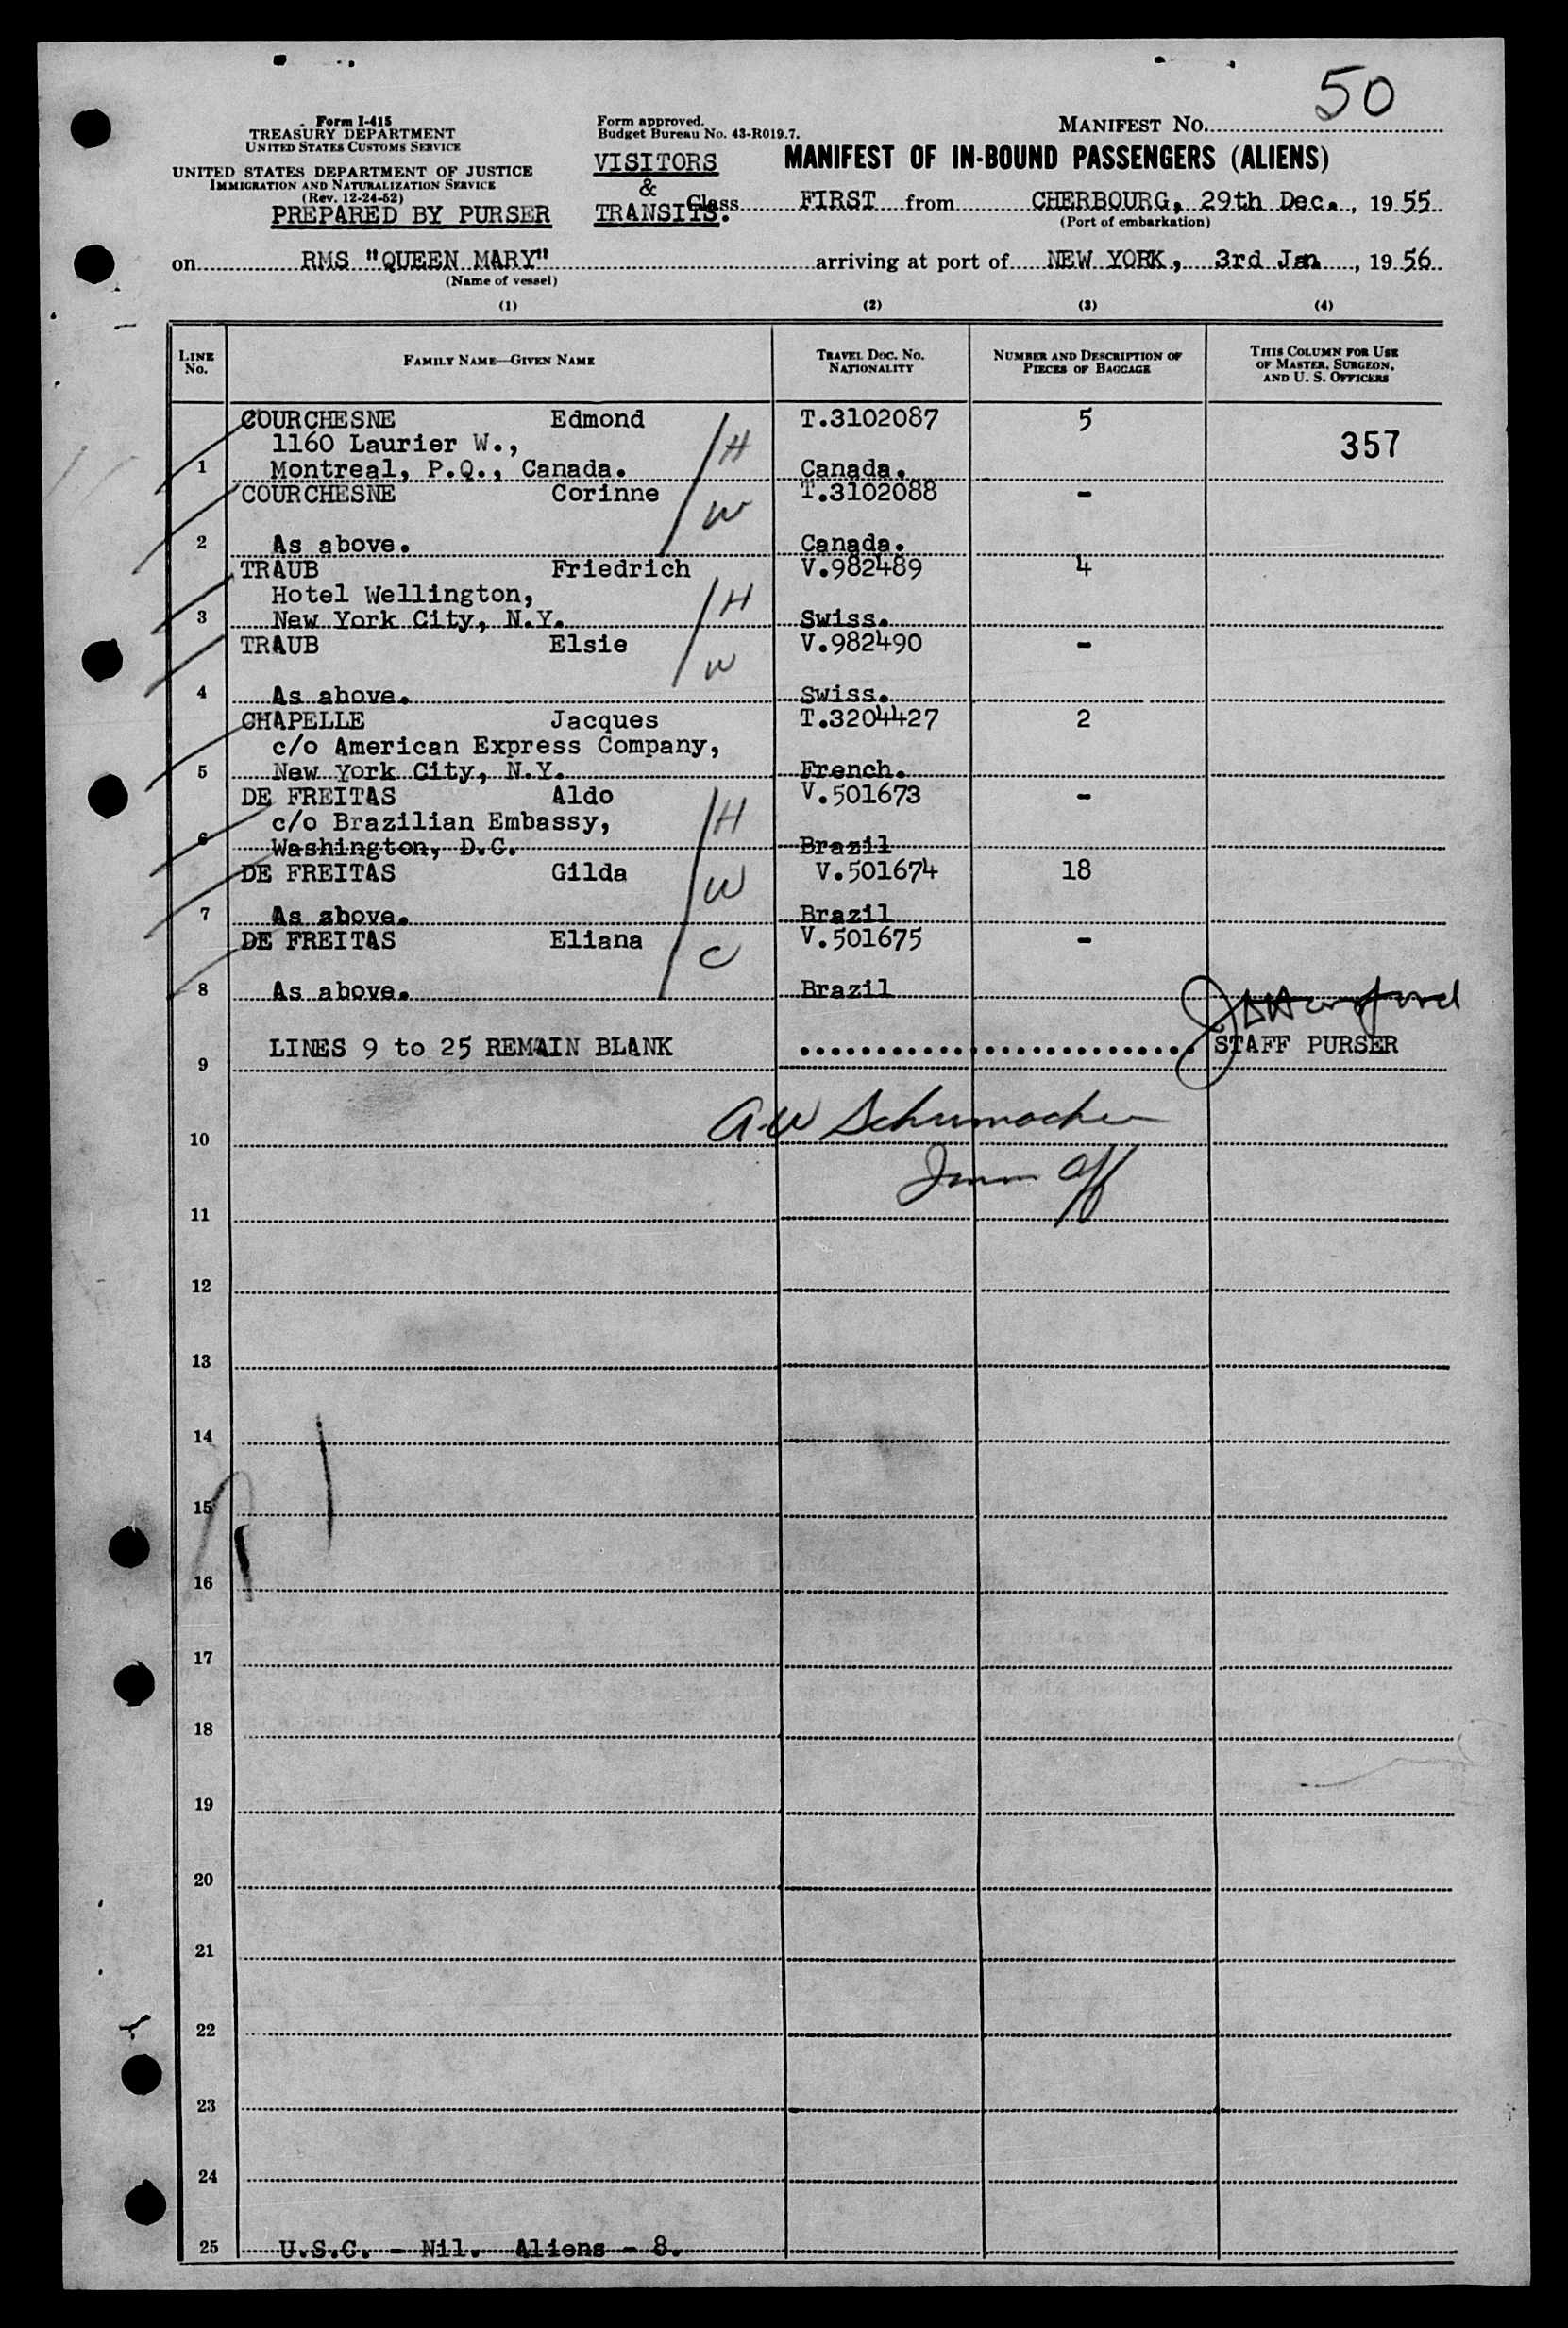 50
Form I-415
TREASURY DEPARTMENT
UNITED STATES CUSTOMS SERVICE
UNITED STATES DEPARTMENT OF JUSTICE
IMMIGRATION AND NATURALIZATION SERVICE
(Rev. 12-24-52)
PREPARED BY PURSER
Form approved.
Budget Bureau No. 43-R019.7.
VISITORS
&
TRANSITS.
MANIFEST NO.
MANIFEST OF IN-BOUND PASSENGERS (ALIENS)
Class FIRST from CHERBOURG, 29th Dec., 1955
(Port of embarkation)
on RMS "QUEEN MARY" arriving at port of NEW YORK, 3rd Jan, 1956
(Name of vessel)
(1) (2) (3) (4)
LINE NO. FAMILY NAME—GIVEN NAME TRAVEL DOC. NO. NATIONALITY NUMBER AND DESCRIPTION OF PIECES OF BAGGAGE THIS COLUMN FOR USE OF MASTER, SURGEON, AND U. S. OFFICERS
COURCHESNE Edmond T.3102087 5
1160 Laurier W., H 357
1 Montreal, P.Q., Canada. Canada.
COURCHESNE Corinne T.3102088 -
W
2 As above. Canada.
TRAUB Friedrich V.982489 4
Hotel Wellington, H
3 New York City, N.Y. Swiss.
TRAUB Elsie V.982490 -
W
4 As above. Swiss.
CHAPELLE Jacques T.3204427 2
c/o American Express Company,
5 New York City, N.Y. French.
DE FREITAS Aldo V.501673 -
c/o Brazilian Embassy, H
6 Washington, D.C. Brazil
DE FREITAS Gilda V.501674 18
W
7 As above. Brazil
DE FREITAS Eliana V.501675 -
C
8 As above. Brazil
LINES 9 to 25 REMAIN BLANK STAFF PURSER
9
A.W Schumacher
10
Imm Off
11
12
13
14
15
16
17
18
19
20
21
22
23
24
25 U.S.C. - Nil. Aliens - 8.